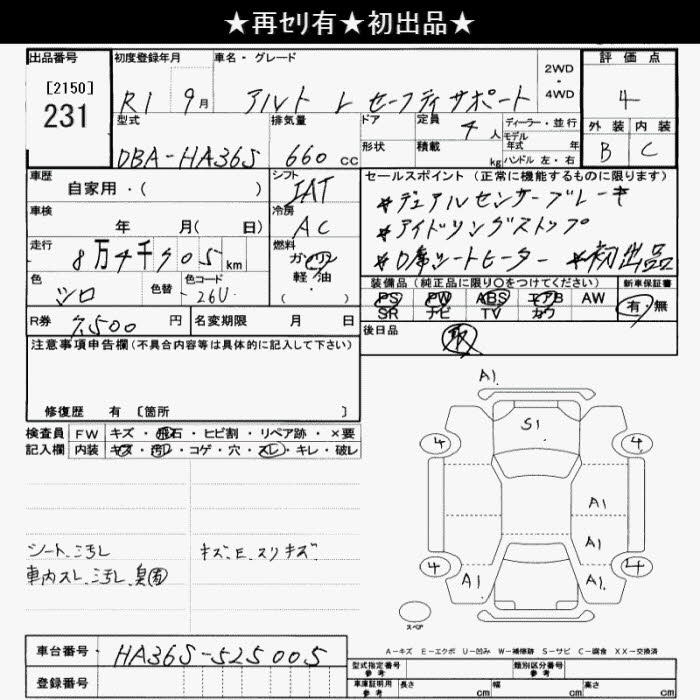 ★再セリ有★初出品★
出品番号 初度登録年月 車名・グレード 2WD・4WD 評価点
[2150]
231
R1 9月 アルト L セーフティサポート 4
型式 排気量 ドア 定員 4人 ディーラー・並行 外装 内装
モデル年式 年
DBA-HA36S 660cc 形状 積載 kg ハンドル 左・右 B C
車歴 シフト セールスポイント(正常に機能するものに限ります)
自家用・( ) IAT
★デュアルセンサーブレーキ
車検 冷房
年 月( 日) AC ★アイドリングストップ
走行 燃料
8万4千 km ガソリン ★D席シートヒーター ★初出品
軽油
・
色 色替 色コード 装備品(純正品に限り○をつけてください) 新車保証書
シロ 26U PS PW ABS エアB AW 有・無
SR ナビ TV カワ
R券 7,500円 名変期限 月 日 後日品 取
注意事項申告欄(不具合内容等は具体的に記入して下さい)
修復歴 有 〔箇所 〕
検査員 FW キズ・飛石・ヒビ割・リペア跡・×要
記入欄 内装 キズ・汚れ・コゲ・穴・スレ・キレ・破レ
A1
S1
4 4
A1
A1
4 4
A1 A1
シート、汚れ キズ、E、スリキズ
車内スレ、汚れ、臭
スペア
A-キズ E-エクボ U-凹み W-補修跡 S-サビ C-腐食 XX-交換済
車台番号 HA36S-525005
登録番号
型式指定番号 参考 類別区分番号 参考
車庫証明用 参考 長さ cm 幅 cm 高さ cm